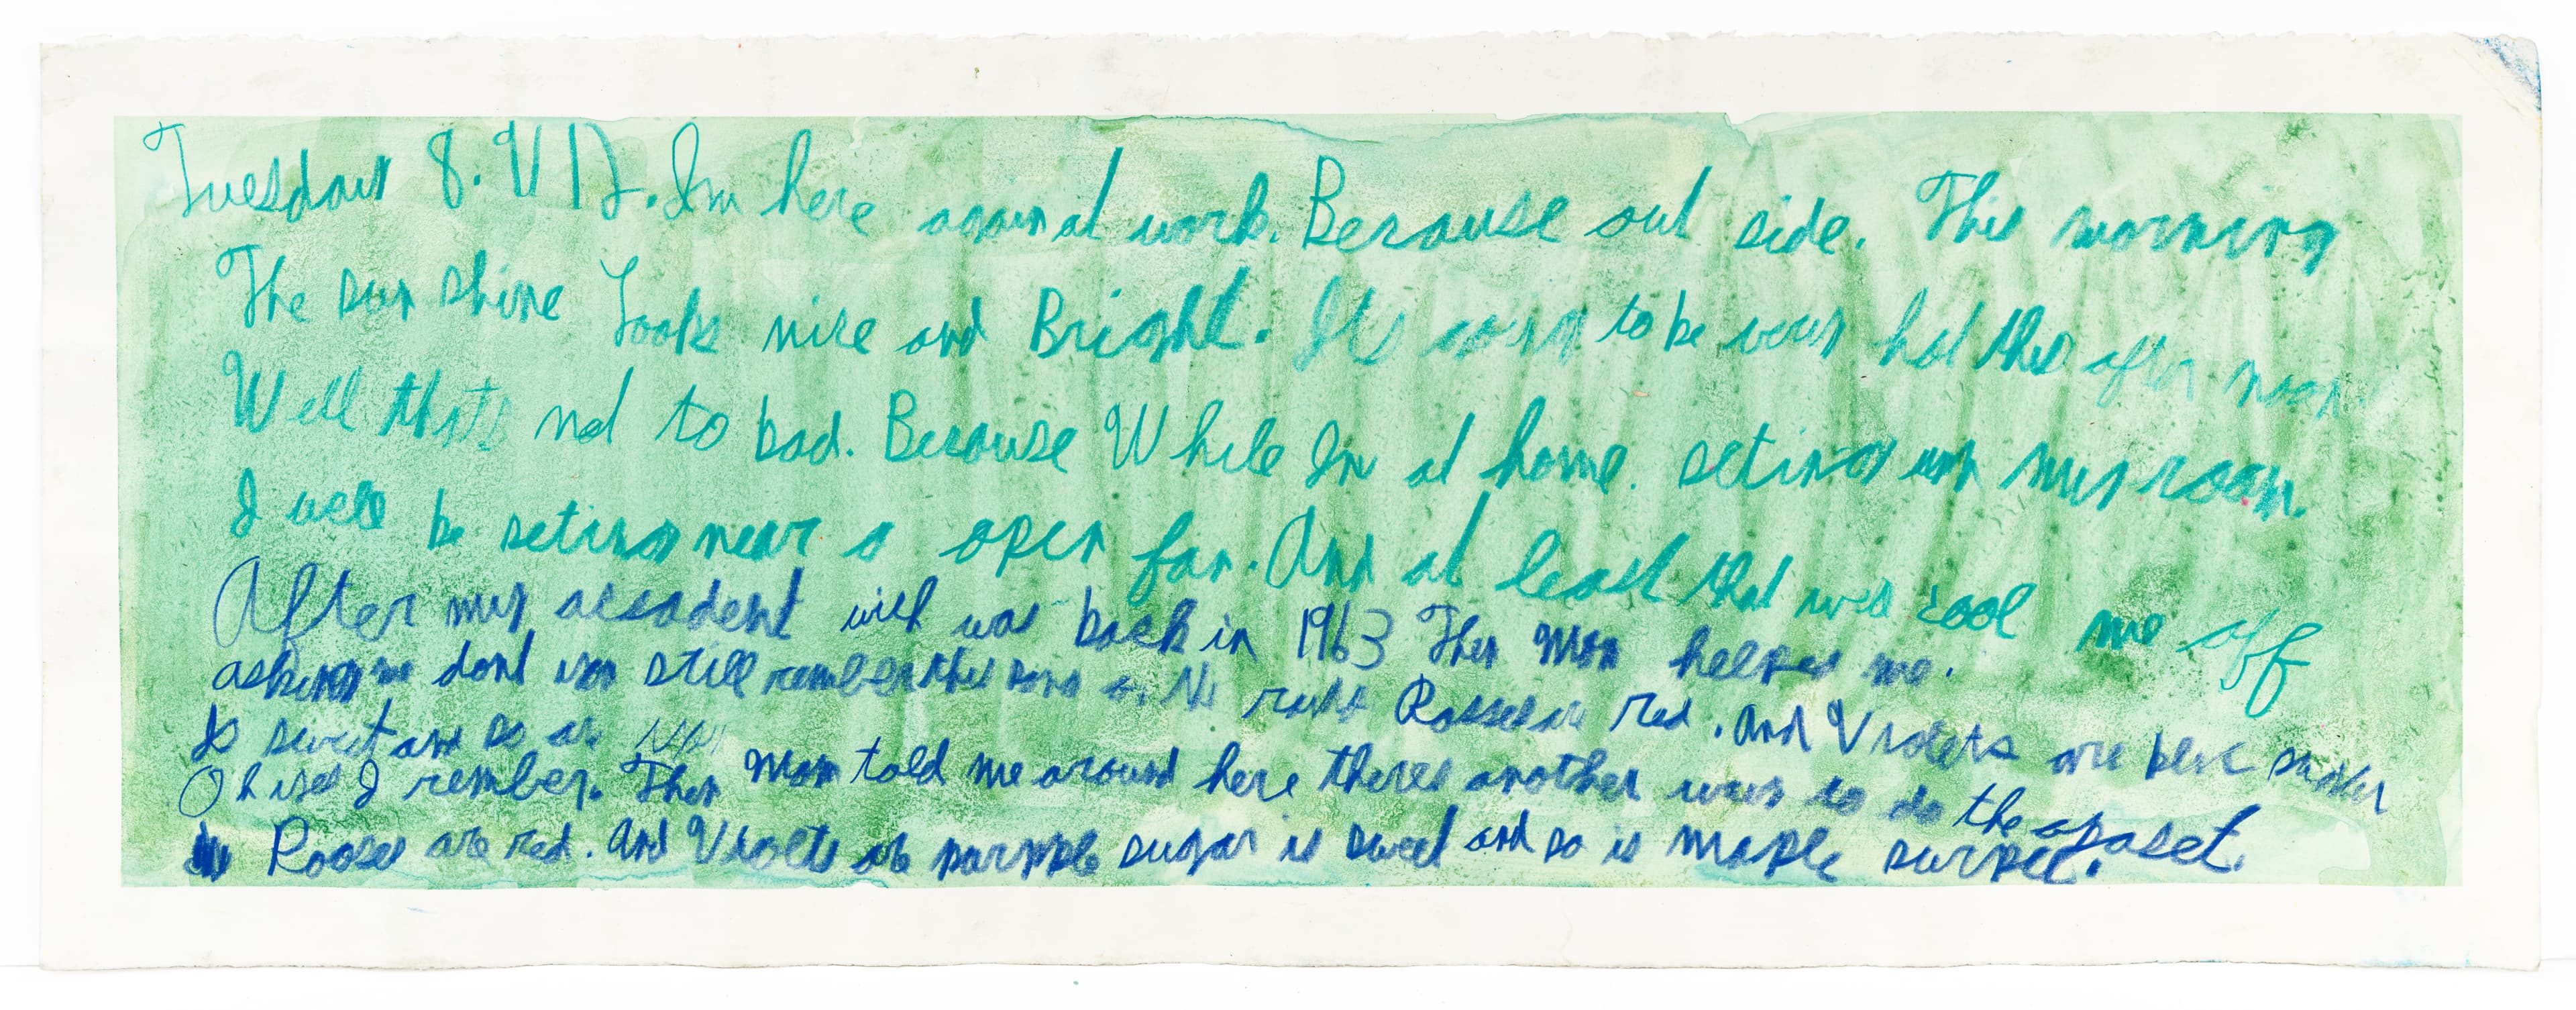 Tuesday 8. V 12. Im here again at work. Because out side. This morning
The sun shine Looks nice and Bright. Its going to be very hot this after noon.
Well thats not to bad. Because While Im at home. seting in my room.
I well be seting near a open fan. And at least that will cool me off
After my acsadent wich was back in 1963 Then Mom helped me.
asking me dont you still rember this song Rosses are red. And Violets are blue sugar
Is sweet and so are you
Oh yes I rember. Then Mom told me around here theres another way to do the opaset.
Rooses are red. And Violets are purple sugar is sweet and so is maple surpee.